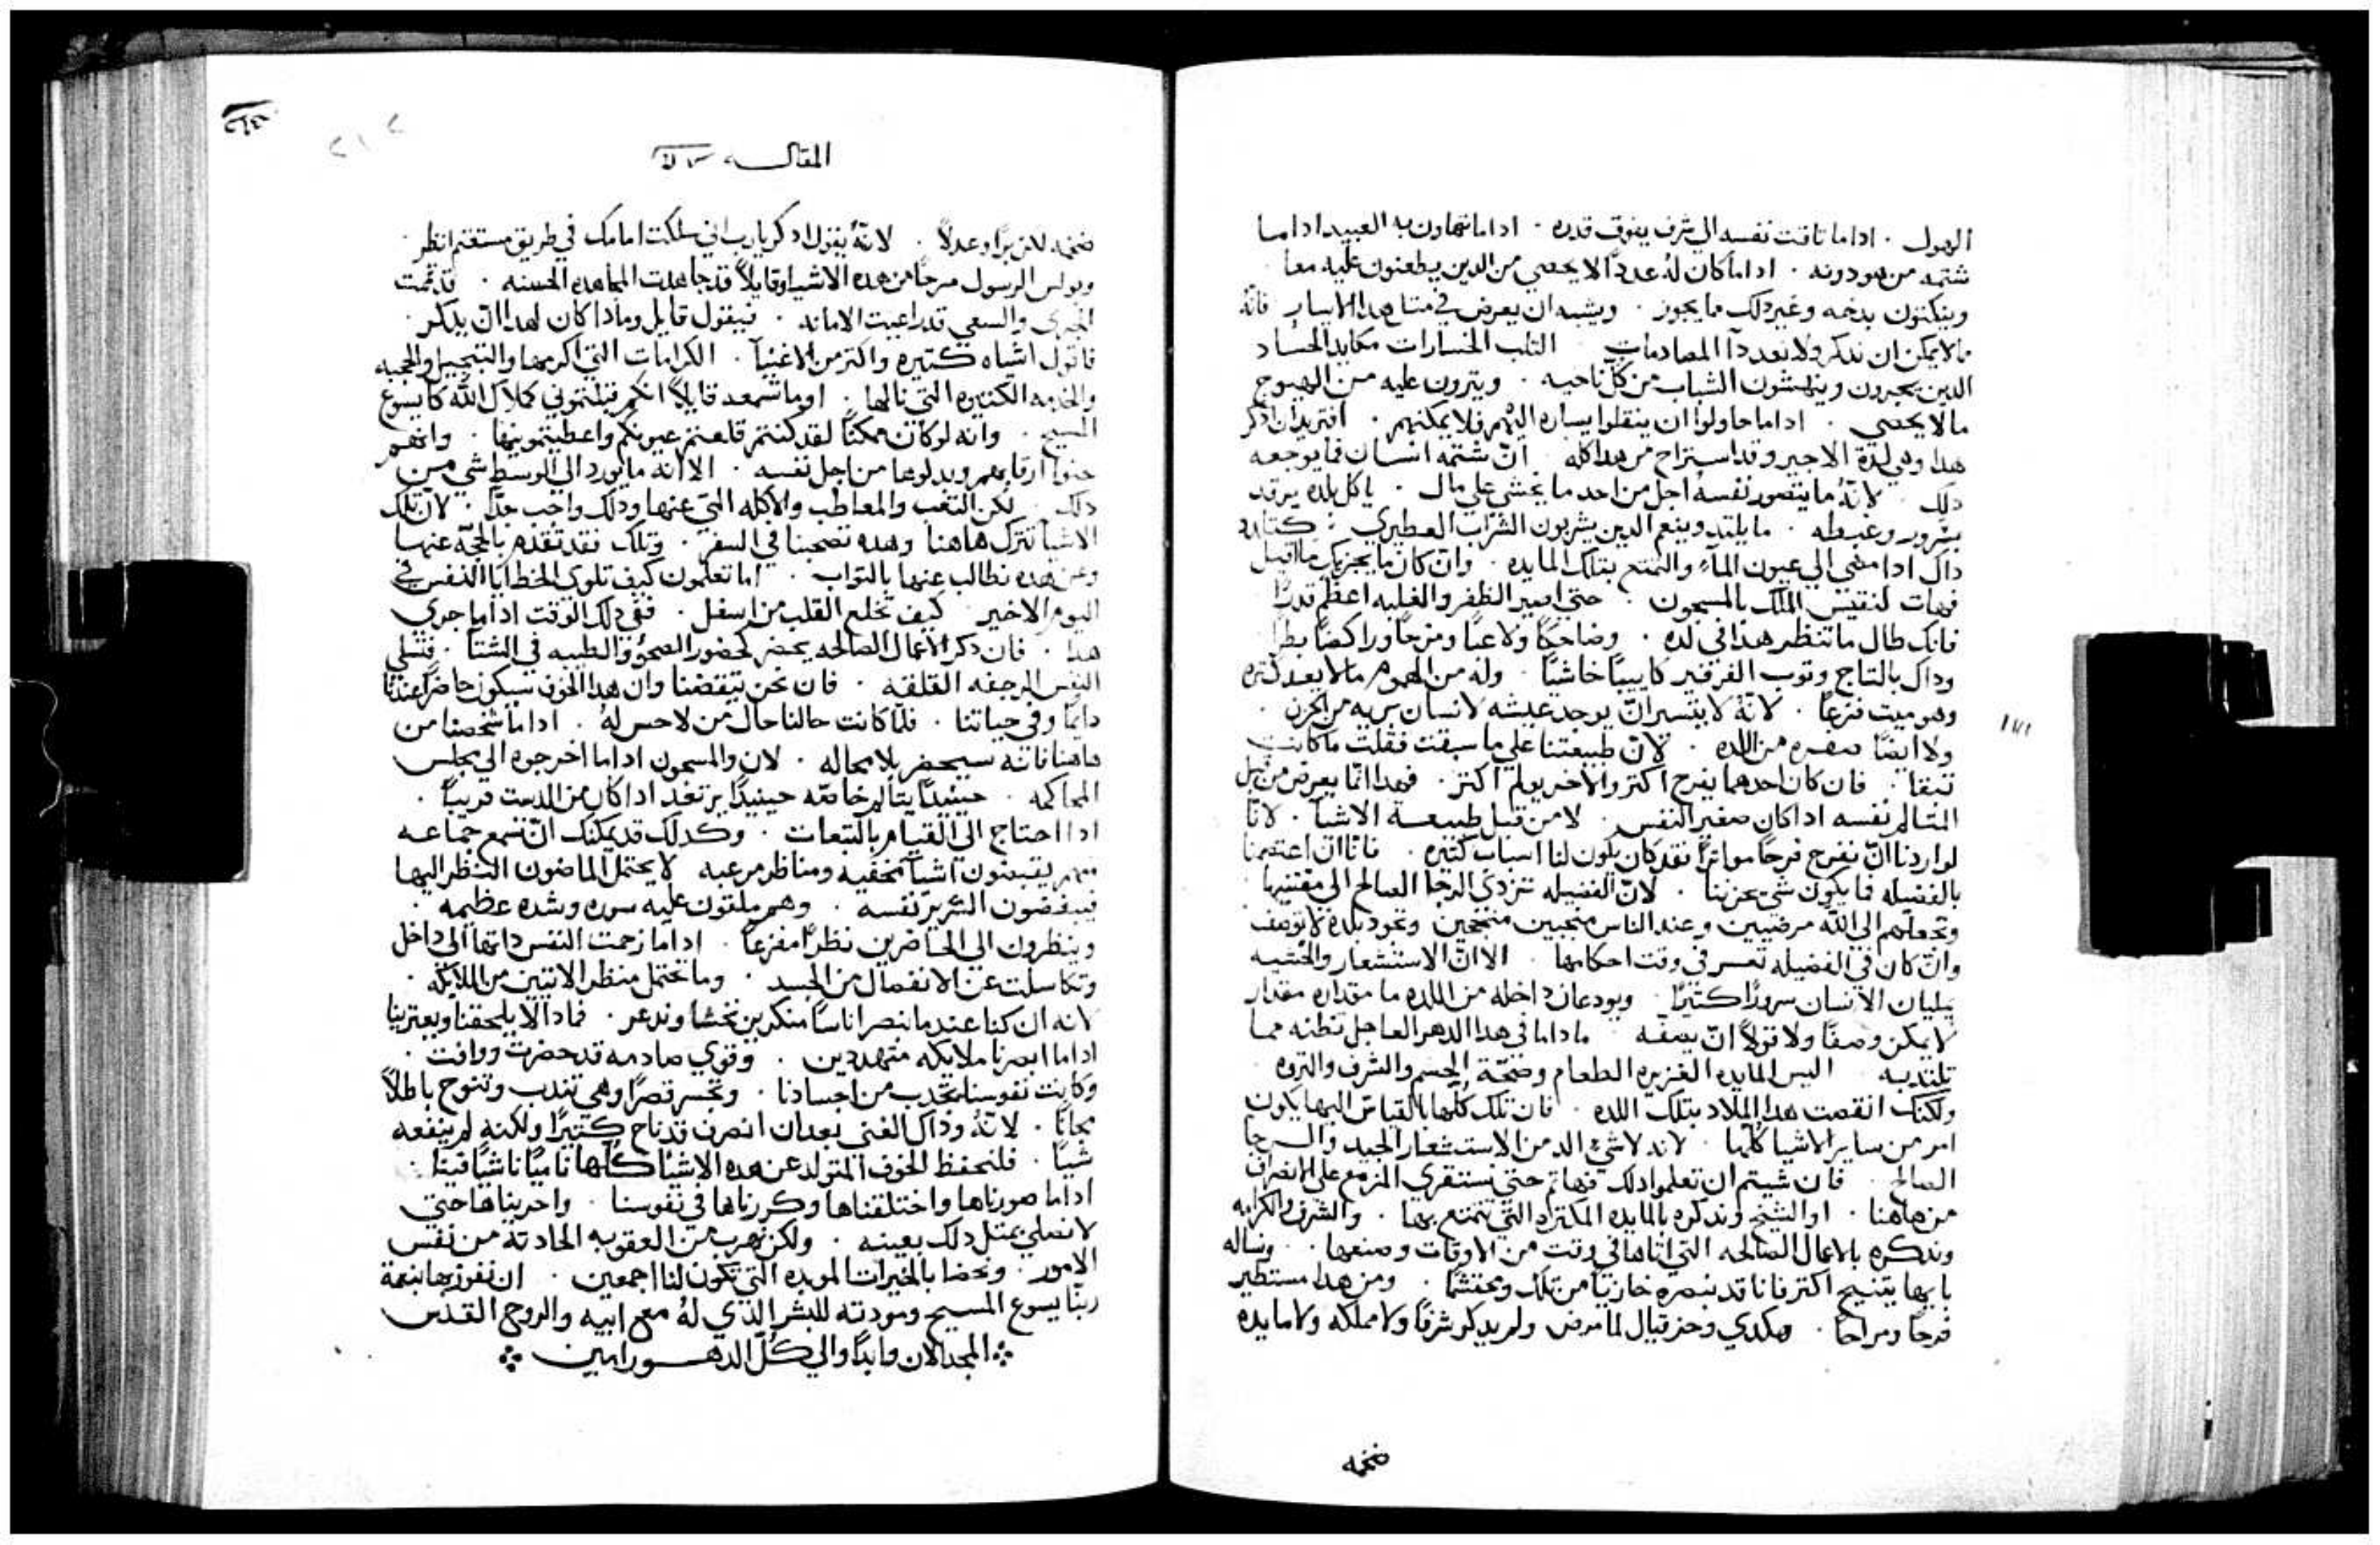 الهول . اداما تاقت نفسه الي شرف يفوق قدره . اداما تهاون به العبيد اداما
شتمه من هو دونه . اداما كان له عددًا لا يحصي من الدين يطعنون عليه معا
وينكتون بدخه وغير دلك ما يجوز . ويشبه ان يعرض في متل هدا الاسباب فانه
ما لا يمكن ان ندكر ولا نعدد آ المصادمات التلب الخسارات مكايد الحساد
الدين يجبرون وينهشون الشباب من كل ناحيه . ويترون عليه من الهيوج
ما لا يحصي . اداما حاولوا ان ينقلوا يساره اليهم فلا يمكنهم . افتريد ان ادكر
هدا وهي لدة الاجير وقد استراح من هدا كله ان شتمه انسان فما يوجعه
دلك لانه ما يتصور نفسه اجل من احد ما يخشي علي مال . ياكل بلده يرقد
بسرور وغبطه . ما يلتد وينعم الدين يشربون الشراب العطيري
داك ادا مضي الي عيون الماء والتمتع بتلك المايده . وان كان ما يجزيك ما قيل
فهات لنقيس الملك بالمسجون . حتي اصير الظفر والغلبه اعظم قدرًا
فانك طال ما تنظر هدا في لده . وضاحكًا ولاعبًا ومزحًا وراكضًا بطرًا
وداك بالتاج وتوب الفرفير كاييبًا خاشيًا . وله من الهموم ما لا يعد كتره
وهو ميت فزعًا . لانه لا يتيسر ان يوجد عيشه لانسان بريه من الحزن .
ولا ايضًا من اللده . لان طبيعتنا علي ما سبقت فقلت ما كانت
تبقا . فان كان احدهما يفرح اكتر والاخر يولم اكتر . فهدا انما يعرض من قبل
المتالم نفسه ادا كان صغير النفس . لا من قبل طبيعة الاشيآ . لانا
لو اردنا ان نفرح فرحًا مواترًا لقد كان يكون لنا اسباب كتيره . فانا ان اعتصمنا
بالفضيله فما يكون شي يحزننا . لان الفضيله تزدي الرجا الصالح الي مقتنيها
وتجعلهم الي الله مرضيين وعند الناس منجبين منجحين وتجود بلده لا توصف
وان كان في الفضيله تعسر في وقت احكامها . الا ان الاستشعار والنيه
يمليان الانسان سرورًا كتيرًا . ويودعان داخله من اللده ما مقداره مقدار
لا يمكن وصفًا ولا قولاً ان يصفه ما داما في هدا الدهر العاجل تظنه مما
تلتد به اليس المايده الغزيره الطعام وصحة الجسم والشرف والتروه
ولكنك انقصت هدا الملاد بتلك اللده . فان تلك كلها بالقياس اليها يكون
امر من ساير الاشيا كلها . لانه لا شي الد من الاستشعار الجيد والرجا
الصالح فان شيتم ان تعلموا دلك فهاتم حتي نستقري المزمع علي الانصراف
من هاهنا . او الشيخ وندكره بالمايده المكترم التي تمتع بها . والشرف والكرامه
وندكره بالاعمال الصالحه التي اتاها في وقت من الاوقات وصنعها . ونساله
بايها يتنيح اكتر فانا قد نبصره خازيًا من تلك ومحتشمًا . ومن هدا مستطير
فرحًا ومراحًا . هكدي وحزقيال لما مرض ولم يدكر شرفًا ولا مملكه ولا مايده
ضخمه
المقالـــه
ضخمه لكن برًا وعدلاً . لانه يقول ادكر يارب اني سلكت امامك في طريق مستقيم انظر
وبولس الرسول مرحًا من هده الاشيا وقايلاً قد جاهدت المجاهده الحسنه . قد تممت
الجري والسعي قد راعيت الامانه . فيقول قايل وما دا كان لهدا ان يدكر .
فاقول اشياه كتيره واكتر من الاغنيآ . الكرامات التي اكرمها والتبجيل والحجبه
والخدمه الكتيره التي نالها . اوما تسمعه قايلاً انكم قبلتموني كملاك الله كايسوع
المسيح . وانه لو كان ممكنًا لقد كنتم قلعتم عيونكم واعطيتمونيها . وانهم
حنوا ارقابهم وبدلوها من اجل نفسه . الا انه ما يورد الي الوسط شي من
دلك . لكن التعب والمعاطب والاكله التي عنها ودلك واجب جدًا . لان تلك
الاشيا تترك هاهنا وهده تصحبنا في السفر . وتلك فقد تقدم بالحجه عنها
وعن هده نطالب عنها بالتواب . اما تعلمون كيف تلوي الخطايا النفس في
اليوم الاخير كيف تخلع القلب من اسفل . ففي دلك الوقت اداما جري
هدا . فان دكر الاعمال الصالحه يحضر كحضور الصحو والطيبه في الشتآ . فتسلي
النفس المرجفه القلقه . فان نحن تيقضنا وان هدا الخوف سيكون حاضرًا عندنا
دايمًا وفي حياتنا . فلما كانت حالنا حال من لا حس له . اداما شخصنا من
هاهنا فانه سيحضر بلا محاله . لان والمسجون اداما اخرجوه الي مجلس
المحاكمه . حينيدًا يتالم خاصه حينيدًا يرتعد ادا كان من الدست قريبًا .
ادا احتاج الي القيام بالتبعات . وكدلك قد يمكنك ان تسمع جماعه
منهم يقصون اشيآ مخيفه ومناظر مرعبه لا يحتمل الماضون النظر اليها
فينفضون السرير نفسه . وهم ملقون عليه بسوره وشده عظيمه .
وينظرون الي الحاضرين نظرًا مفزعًا . اداما زحمت النفس داتها الي داخل
وتكاسلت عن الانفصال من الجسد . وما تحتمل منظر الاتيين من الملايكه .
لانه ان كنا عندما نبصر اناسًا منكرين نخشا وندعر . فمادا لا يلحقنا ويعترينا
اداما ابصرنا ملايكه متهددين . وقوي صادمه قد حضرت ووافت .
وكانت نفوسنا تجدب من اجسادنا . وتجر قصرًا وهي تندب وتنوح باطلاً
مجانًا . لانه وداك الغني بعد ان انصرف قد ناح كتيرًا ولكنه لم ينفعه
شيًا . فلنحفظ الخوف المتولد عن هده الاشيا كلها ناميًا ناشيًا فينا .
اداما صورناها واختلقناها وكررناها في نفوسنا . واجريناها حتي
لا نصلي بمتل دلك بعينه . ولكن نهرب من العقوبه الحادته من نفس
الامور . ونحضا بالخيرات الموبده التي تكون لنا اجمعين . ان نفوز بها بنعمة
ربنا يسوع المسيح ومودته للبشر الدي له مع ابيه والروح القدس
المجد الان وابدًا والي كل الدهـــور امين